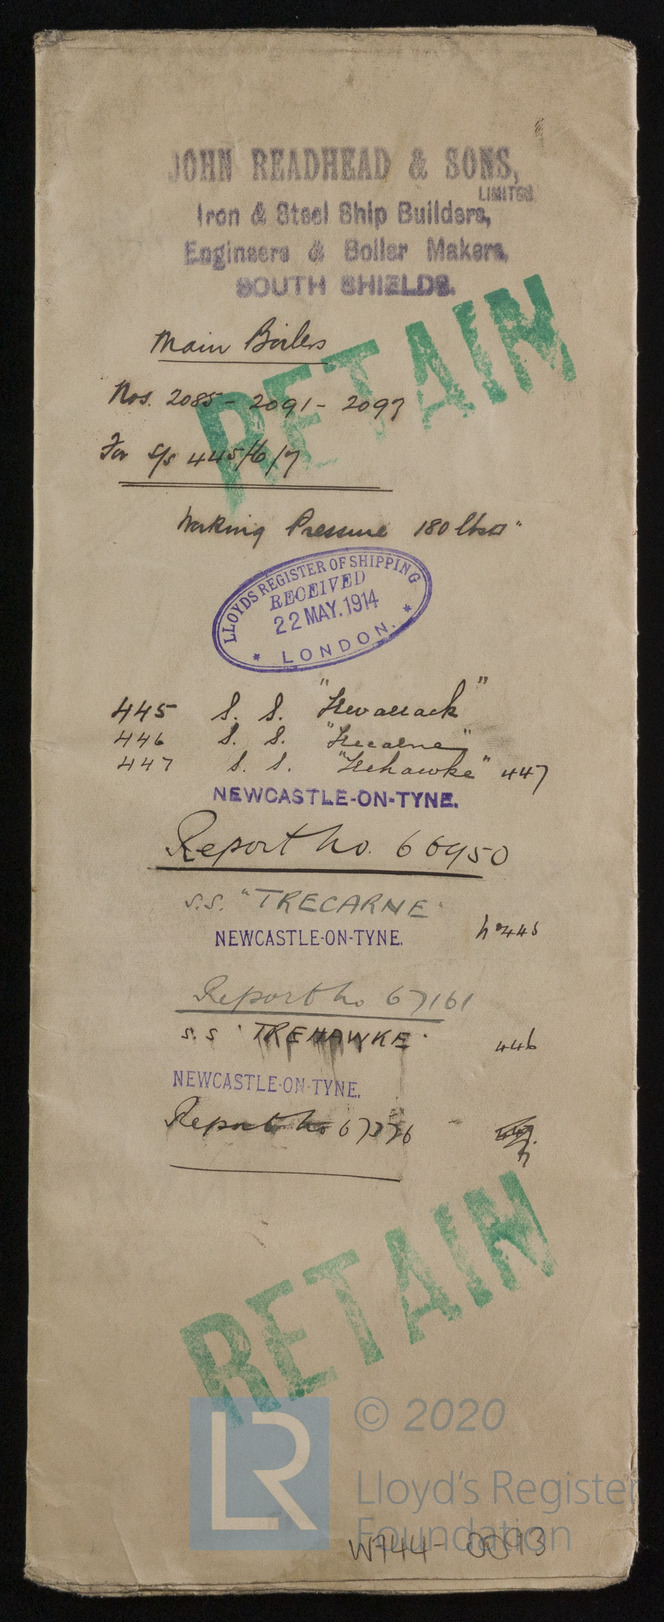 JOHN READHEAD & SONS,
LIMITED
Iron & Steel Ship Builders,
Engineers & Boiler Makers,
SOUTH SHIELDS.
RETAIN
Main Boilers
Nos. 2085 - 2091 - 2097
For S/s 445/6/7
Working Pressure 180 lbs
LLOYDS REGISTER OF SHIPPING
RECEIVED
22 MAY. 1914
* LONDON. *
445 S. S.
446 S. S.
447 S. S. "Trehawke" 447
NEWCASTLE-ON-TYNE.
Report No. 66950
S.S. "TRECARNE"
NEWCASTLE-ON-TYNE.
Report No 67161
S.S "TREHAWKE" 446
NEWCASTLE-ON-TYNE.
Report No
RETAIN
LR
© 2020
Lloyd's Register
Foundation
W744-0093